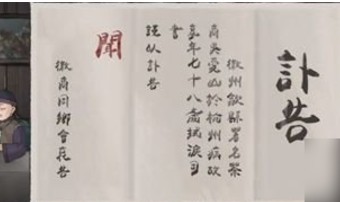 訃告
徽州歙縣署名茶
商吳山於杭州病故
享年七十八歲拭淚
書
謹以訃告
聞
徽商同鄉會告